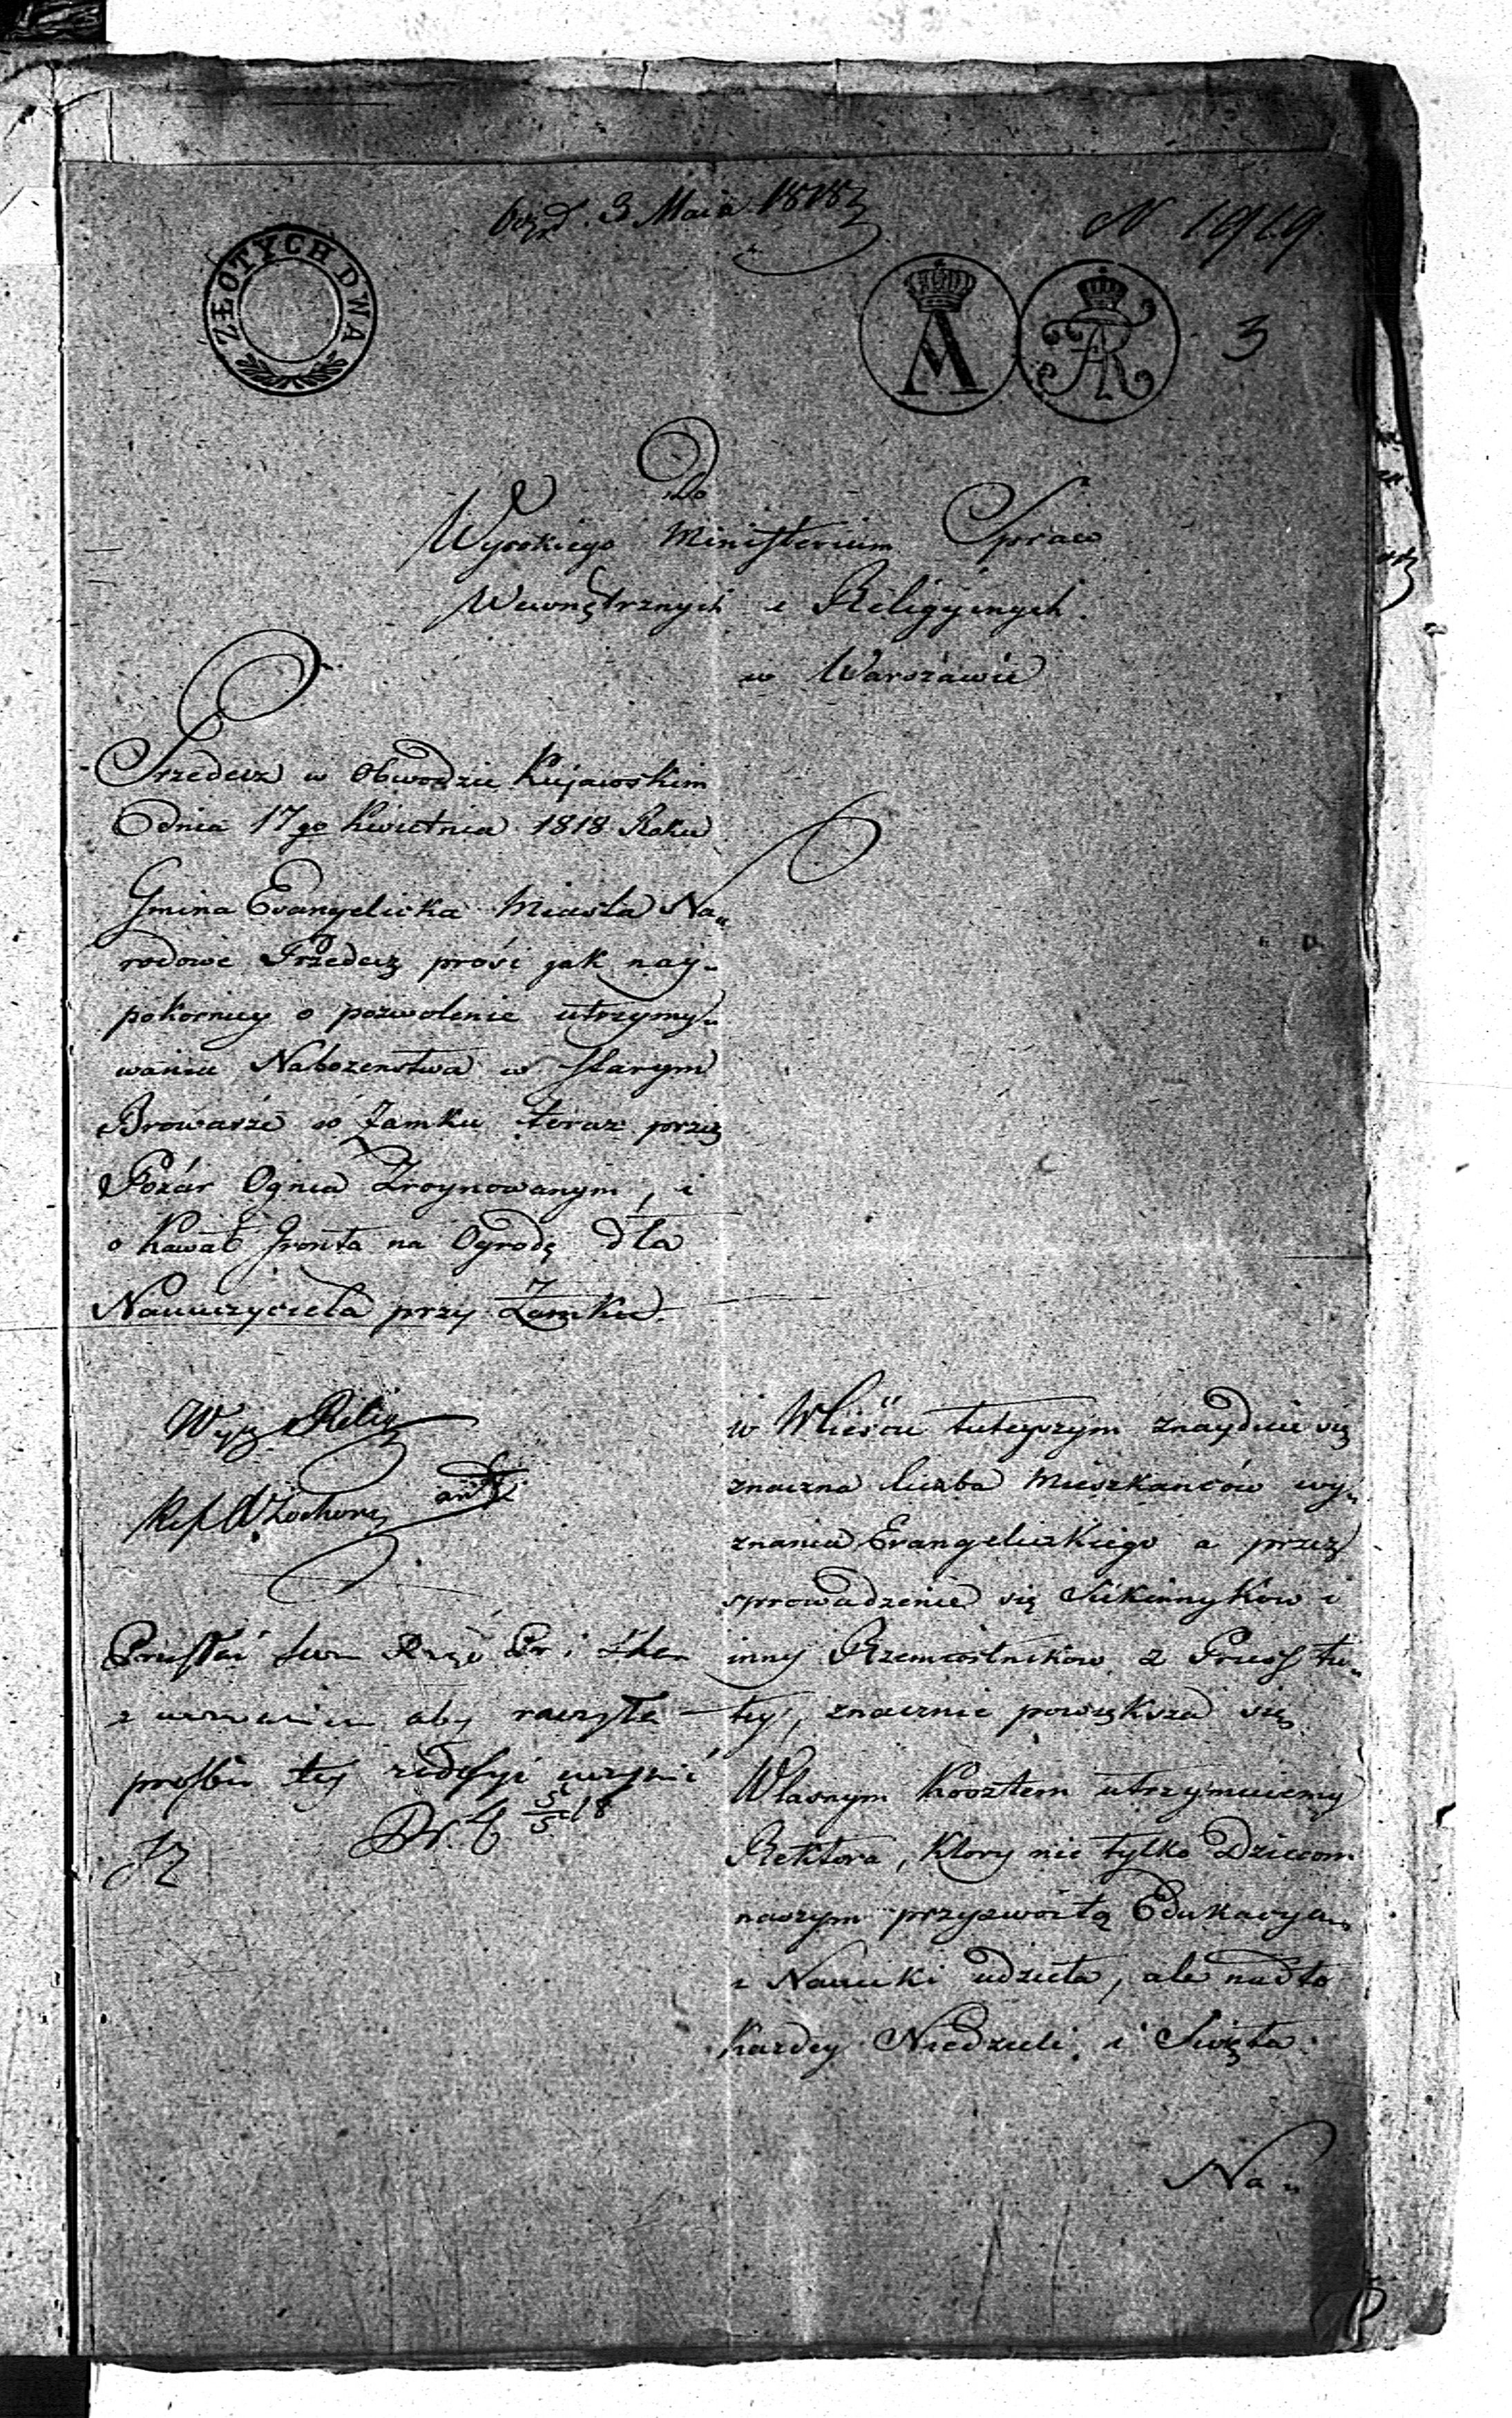 3 Maia 1818
N 1919
ZŁOTYCH DWA
3
Do
Wysokiego Ministerium Spraw
Wewnętrznych i Religyinych
w Warszawie
Przedecz w Obwodzie Kujawskim
dnia 17go Kwietnia 1818 Roku
Gmina Evangelicka Miasta Na„
rodowe Przedecz prosi jak nay„
pokorniey o pozwolenie utrzymy„
wania Nabozenstwa w starym
Browarze w Zamku teraz przez
Pożar Ognia Zroynowanym, i
o Kawał Gronta na Ogrodę dla
Nauczyciela przy Zamku.
Wyz Relig
Ref
aby raczyła
prosbie tey uczynić
5/5 18
w Mieście tuteyszym znayduie się
znaczna liczba Mieszkanców wy„
znania Evangelickiego a przez
sprowadzenie się Sukiennykow i
inny Rzemieslnikow z Pruss tu„
tey, znacznie powiększa się
Własnym Kosztem utrzymuiemy
Rektora, Ktory nie tylko Dzieciom
naszym przyzwoitą Edukacyą
i Nauuki udziela, ale nadto
Kazdey Niedzieli i Swięta
Na„